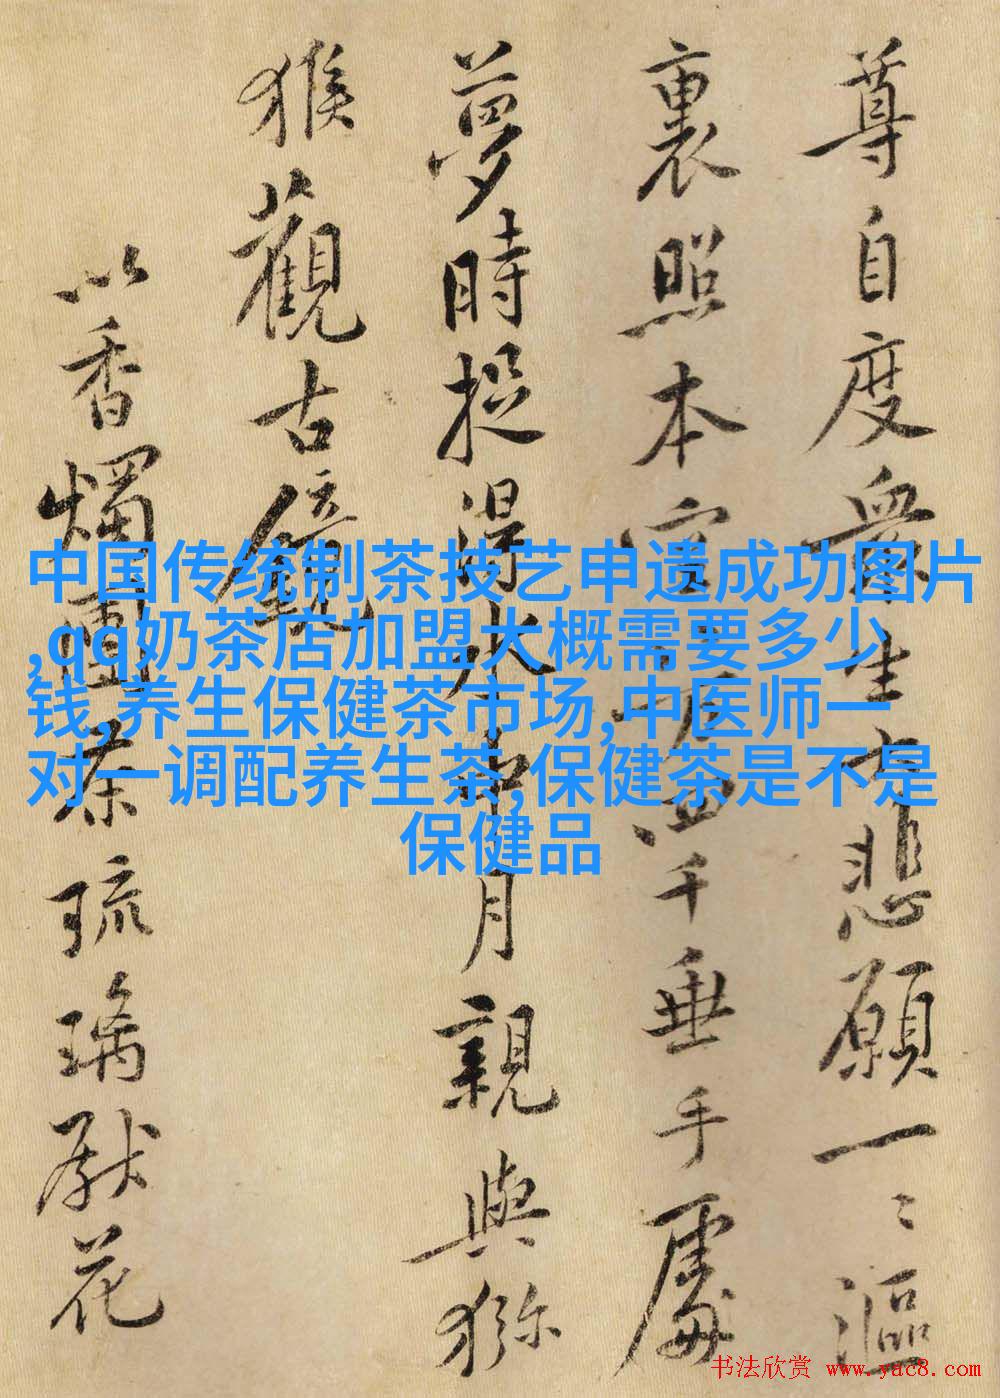 尊自度眾生大悲願一〻漚
裏照本空四千垂手處
夢時捉得水中月親與獼
猴觀古鏡
以香燭團茶琉璃獻花
中国传统制茶技艺申遗成功图片
,qq奶茶店加盟大概需要多少
钱,养生保健茶市场,中医师一
对一调配养生茶,保健茶是不是
保健品
书法欣赏 www.yac8.com